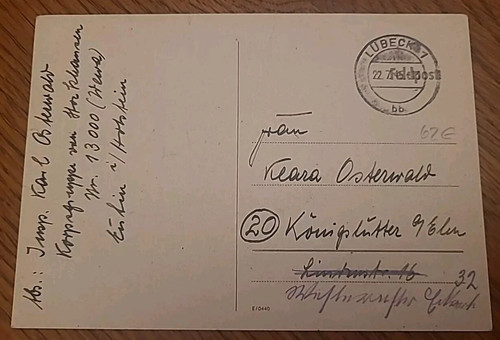 Abs.: Insp. Karl Osterwald
Korpsgruppe von Stockhausen
Nr. 13000 (Siena)
Eutin i/Holstein
LÜBECK 1
22.7.45
Feldpost
bb
62E
Frau
Klara Osterwald
20 Königslutter a/Elm
Lindenstr. 16
32
310440